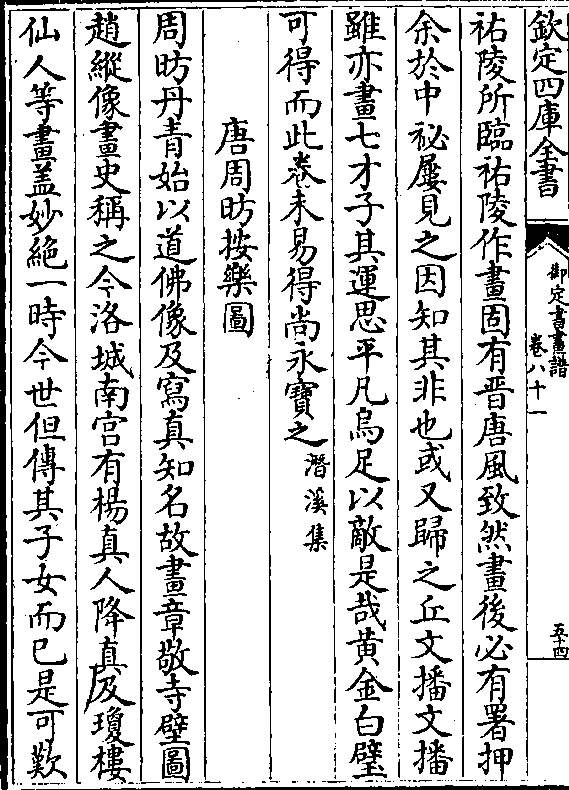 欽定四庫全書
御定書畫譜
卷八十一
五十四
祐陵所臨祐陵作畫固有晋唐風致然畫後必有署押
余於中祕屢見之因知其非也或又歸之丘文播文播
雖亦畫七才子其運思平凡烏足以敵是哉黄金白璧
可得而此卷未易得尚永寶之潛溪集
唐周昉按樂圖
周昉丹青始以道佛像及寫真知名故畫章敬寺壁圖
趙縱像畫史稱之今洛城南宫有楊真人降真及瓊樓
仙人等畫盖妙絶一時今世但傳其子女而已是可歎